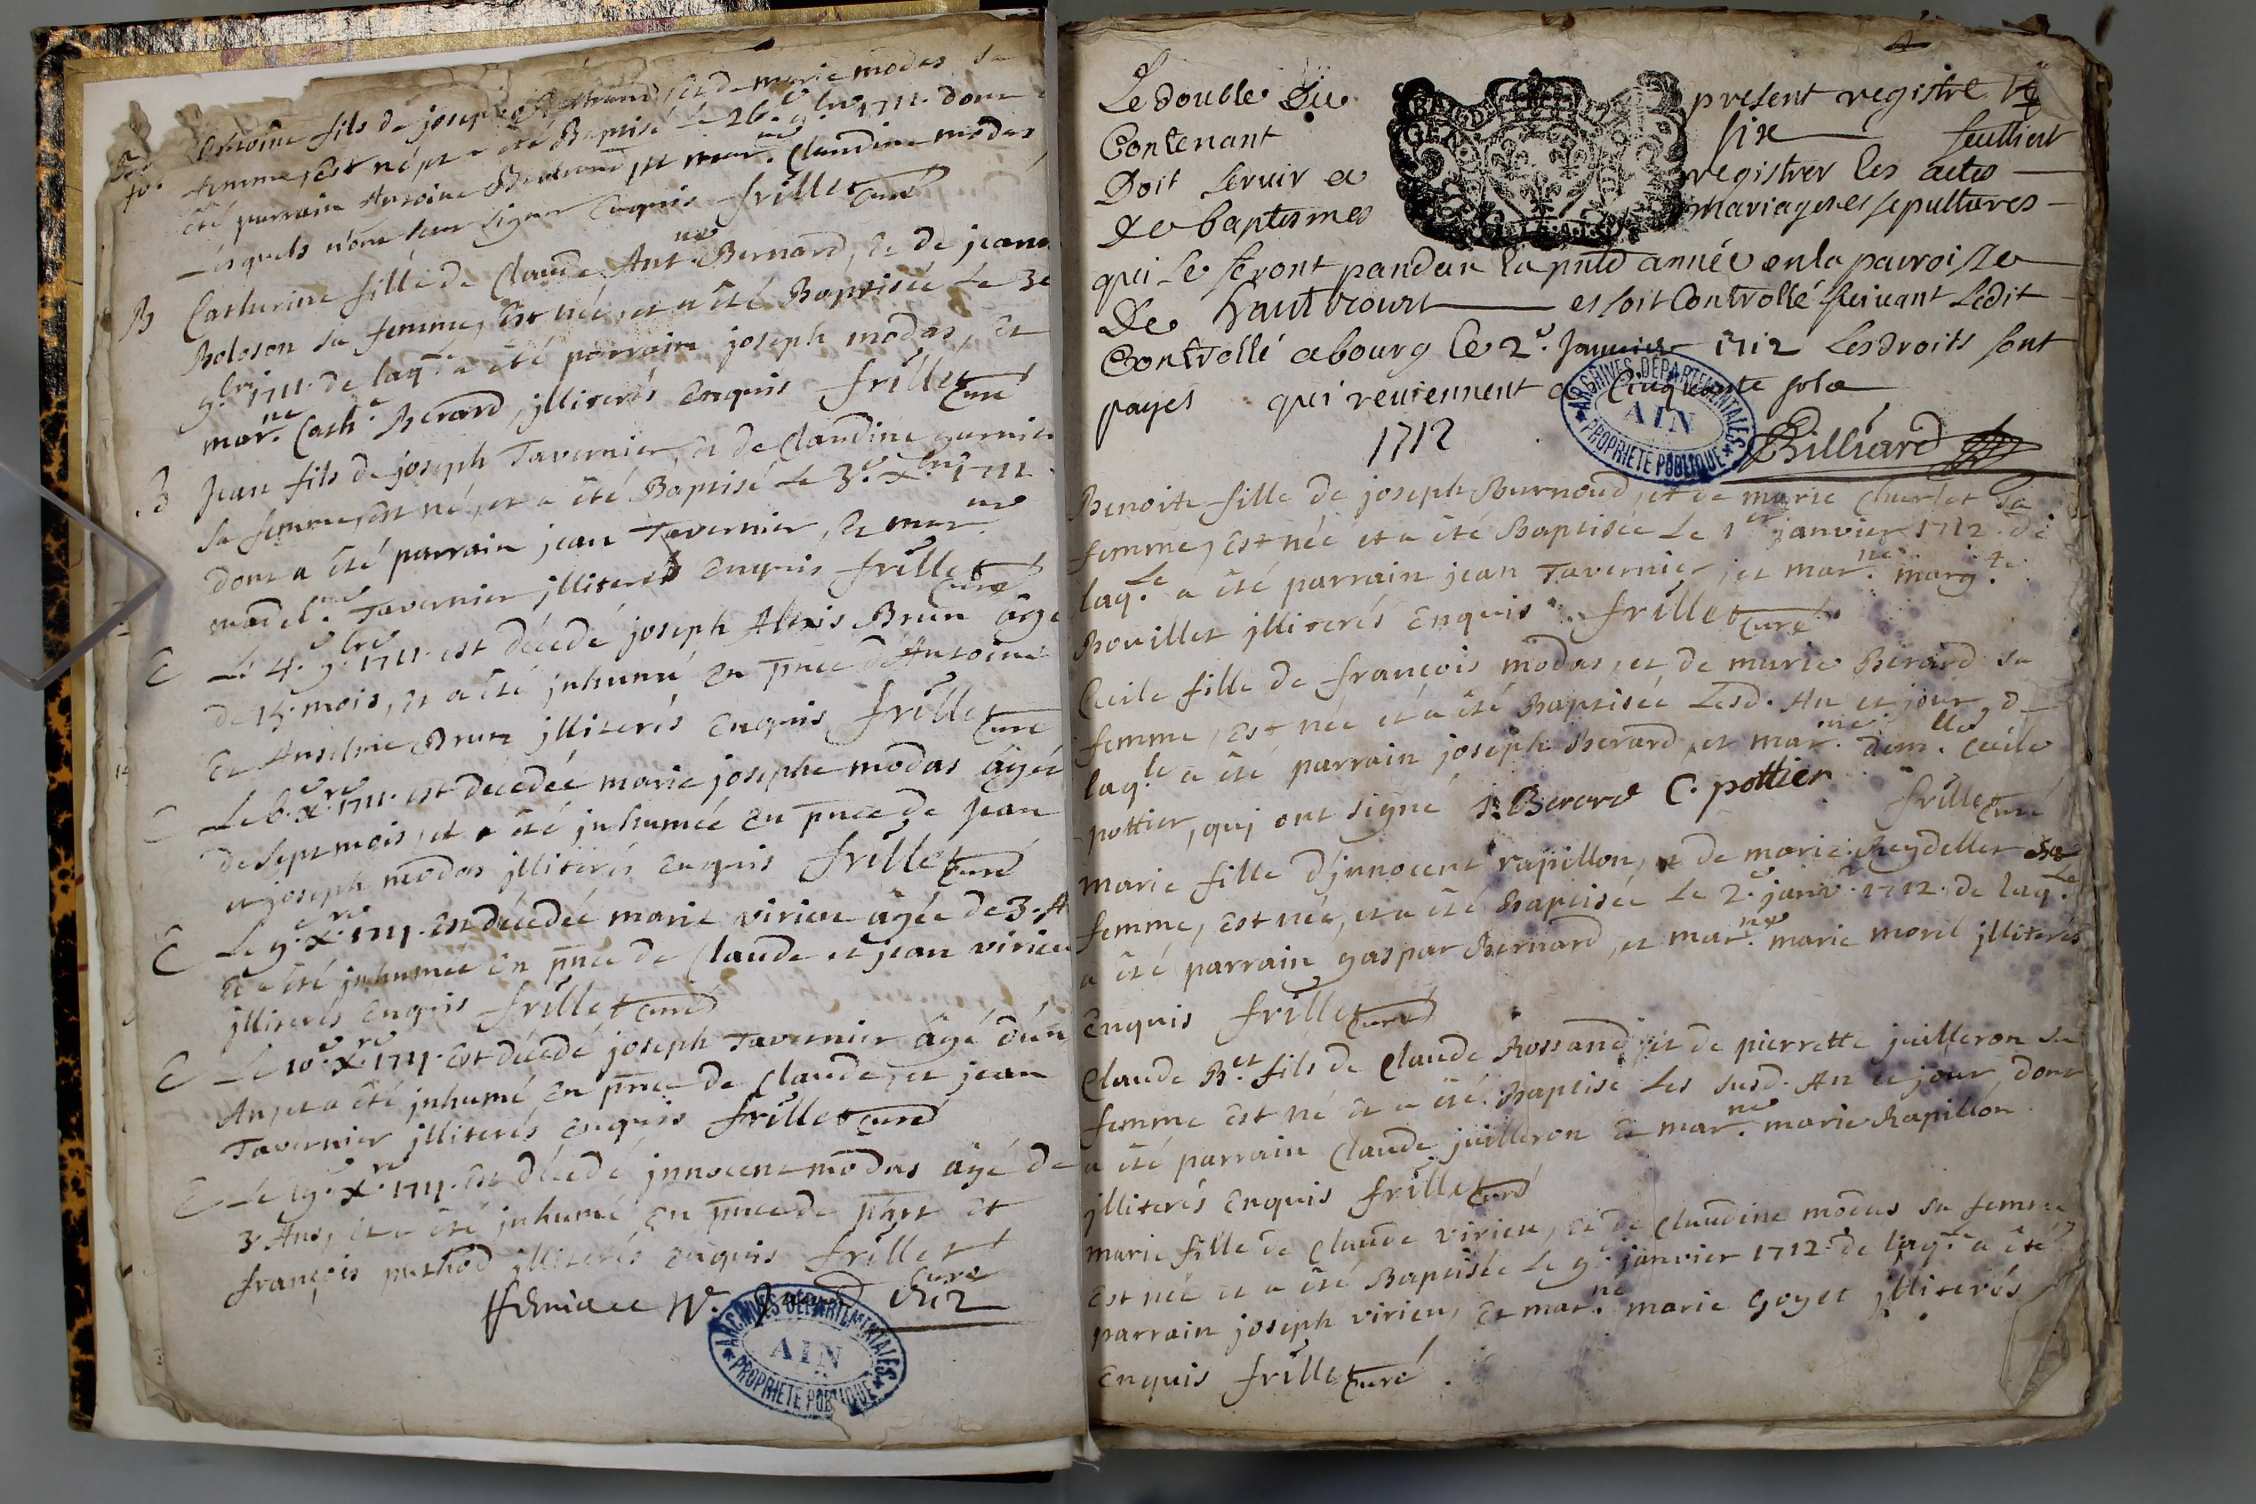 Antoine fils de joseph et de marie modas sa
femme, Est né, et a été Baptisé le 26.e 9.bre 1711. dont a
été parrain Antoine et mar.ne Claudine modas
Lesquels n'ont sceu signer Enquis frillet Curé
B Catherine fille de Claude Ant.ne Bernard, et de jeanne
Boloson sa femme, Est née, et a été Baptisée Le 30
9.bre 1711. de laq.le a été parrain joseph modas, et
mar.ne Cath.e Berard, jlliterés Enquis frillet Curé
B Jean fils de joseph Tavernier, et de Claudine garnier
sa femme, est né, et a été Baptisé Le 3.e x.bre 1711.
dont a été parrain jean Tavernier, et mar.ne
madel.ne Tavernier jlliterés Enquis frillet Curé
E Le 4.e 9.bre 1711. est décédé joseph Alexis Brun âgé
de 15. mois, et a été jnhumé En pñce d'Antoine
et Anselme Brun jlliterés Enquis frillet Curé
E Le 6.e x.re 1711. est decedée marie josephe modas âgée
de sept mois, et a été jnhumée En pñce de jean
et joseph modas jlliterés Enquis frillet Curé
E Le 9.e x.re 1711. Est décedée marie virieu âgée de 3. A
et a été jnhumée En pñce de Claude et jean virieu
jlliterés Enquis frillet Curé
E Le 10.e x.re 1711. Est décedé joseph Tavernier âgé d'un
An, et a été jnhumé En pñce de Claude, et jean
Tavernier jlliterés Enquis frillet Curé
E Le 19.e x.re 1711. Est décedé jnnocent modas âgé de
3. Ans, et a été jnhumé En pñce de phpt et
françois puthod jlliterés Enquis frillet
Curé
ARCHIVES DÉPARTEMENTALES
AIN
PROPRIÉTÉ PUBLIQUE
Le double Du present registre
Contenant six feulliets
Doit servir a registrer les actes
de baptesmes mariages et sepultures
qui se feront pandan la pnte année en la parroisse
De hautecourt et soit Controllé suivant Ledit
Controllé a bourg le 2.e Janvier 1712 Les droits sont
payés qui reviennent a Cinquante sols
ARCHIVES DÉPARTEMENTALES
AIN
PROPRIÉTÉ PUBLIQUE
1712
Benoite fille de joseph Burnoud, et de marie Charlet sa
femme, Est née et a été Baptisée Le 1.er janvier 1712. de
laq.le a été parrain jean Tavernier, et mar.ne marg.te
Bouillet jlliterés Enquis frillet Curé
Cecile fille de françois modas, et de marie Berard sa
femme, Est née et a été Baptisée Lesd. An et jour, de
laq.le a été parrain joseph Berard, et mar.ne dem.lle Cecile
pottier, quj ont signé J: Berard C. pottier frillet Curé
marie fille d'jnnocent rapillon, et de marie Reydellet sa
femme, Est née, et a été Baptisée Le 2.e janv.r 1712. de laq.le
a été parrain gaspar Bernard, et mar.ne marie morel jlliterés
Enquis frillet Curé
Claude B.et fils de Claude Rossand, et de pierrette juilleron sa
femme Est né et a été Baptisé Les susd. An et jour, dont
a été parrain Claude juilleron et mar.ne marie Rapillon
jlliterés Enquis frillet Curé
marie fille de Claude virieu, et de Claudine modas sa femme
Est née et a été Baptisée Le 9.e janvier 1712. de laq.le a été
parrain joseph virieu, et mar.ne marie Goyet jlliterés
Enquis frillet Curé.